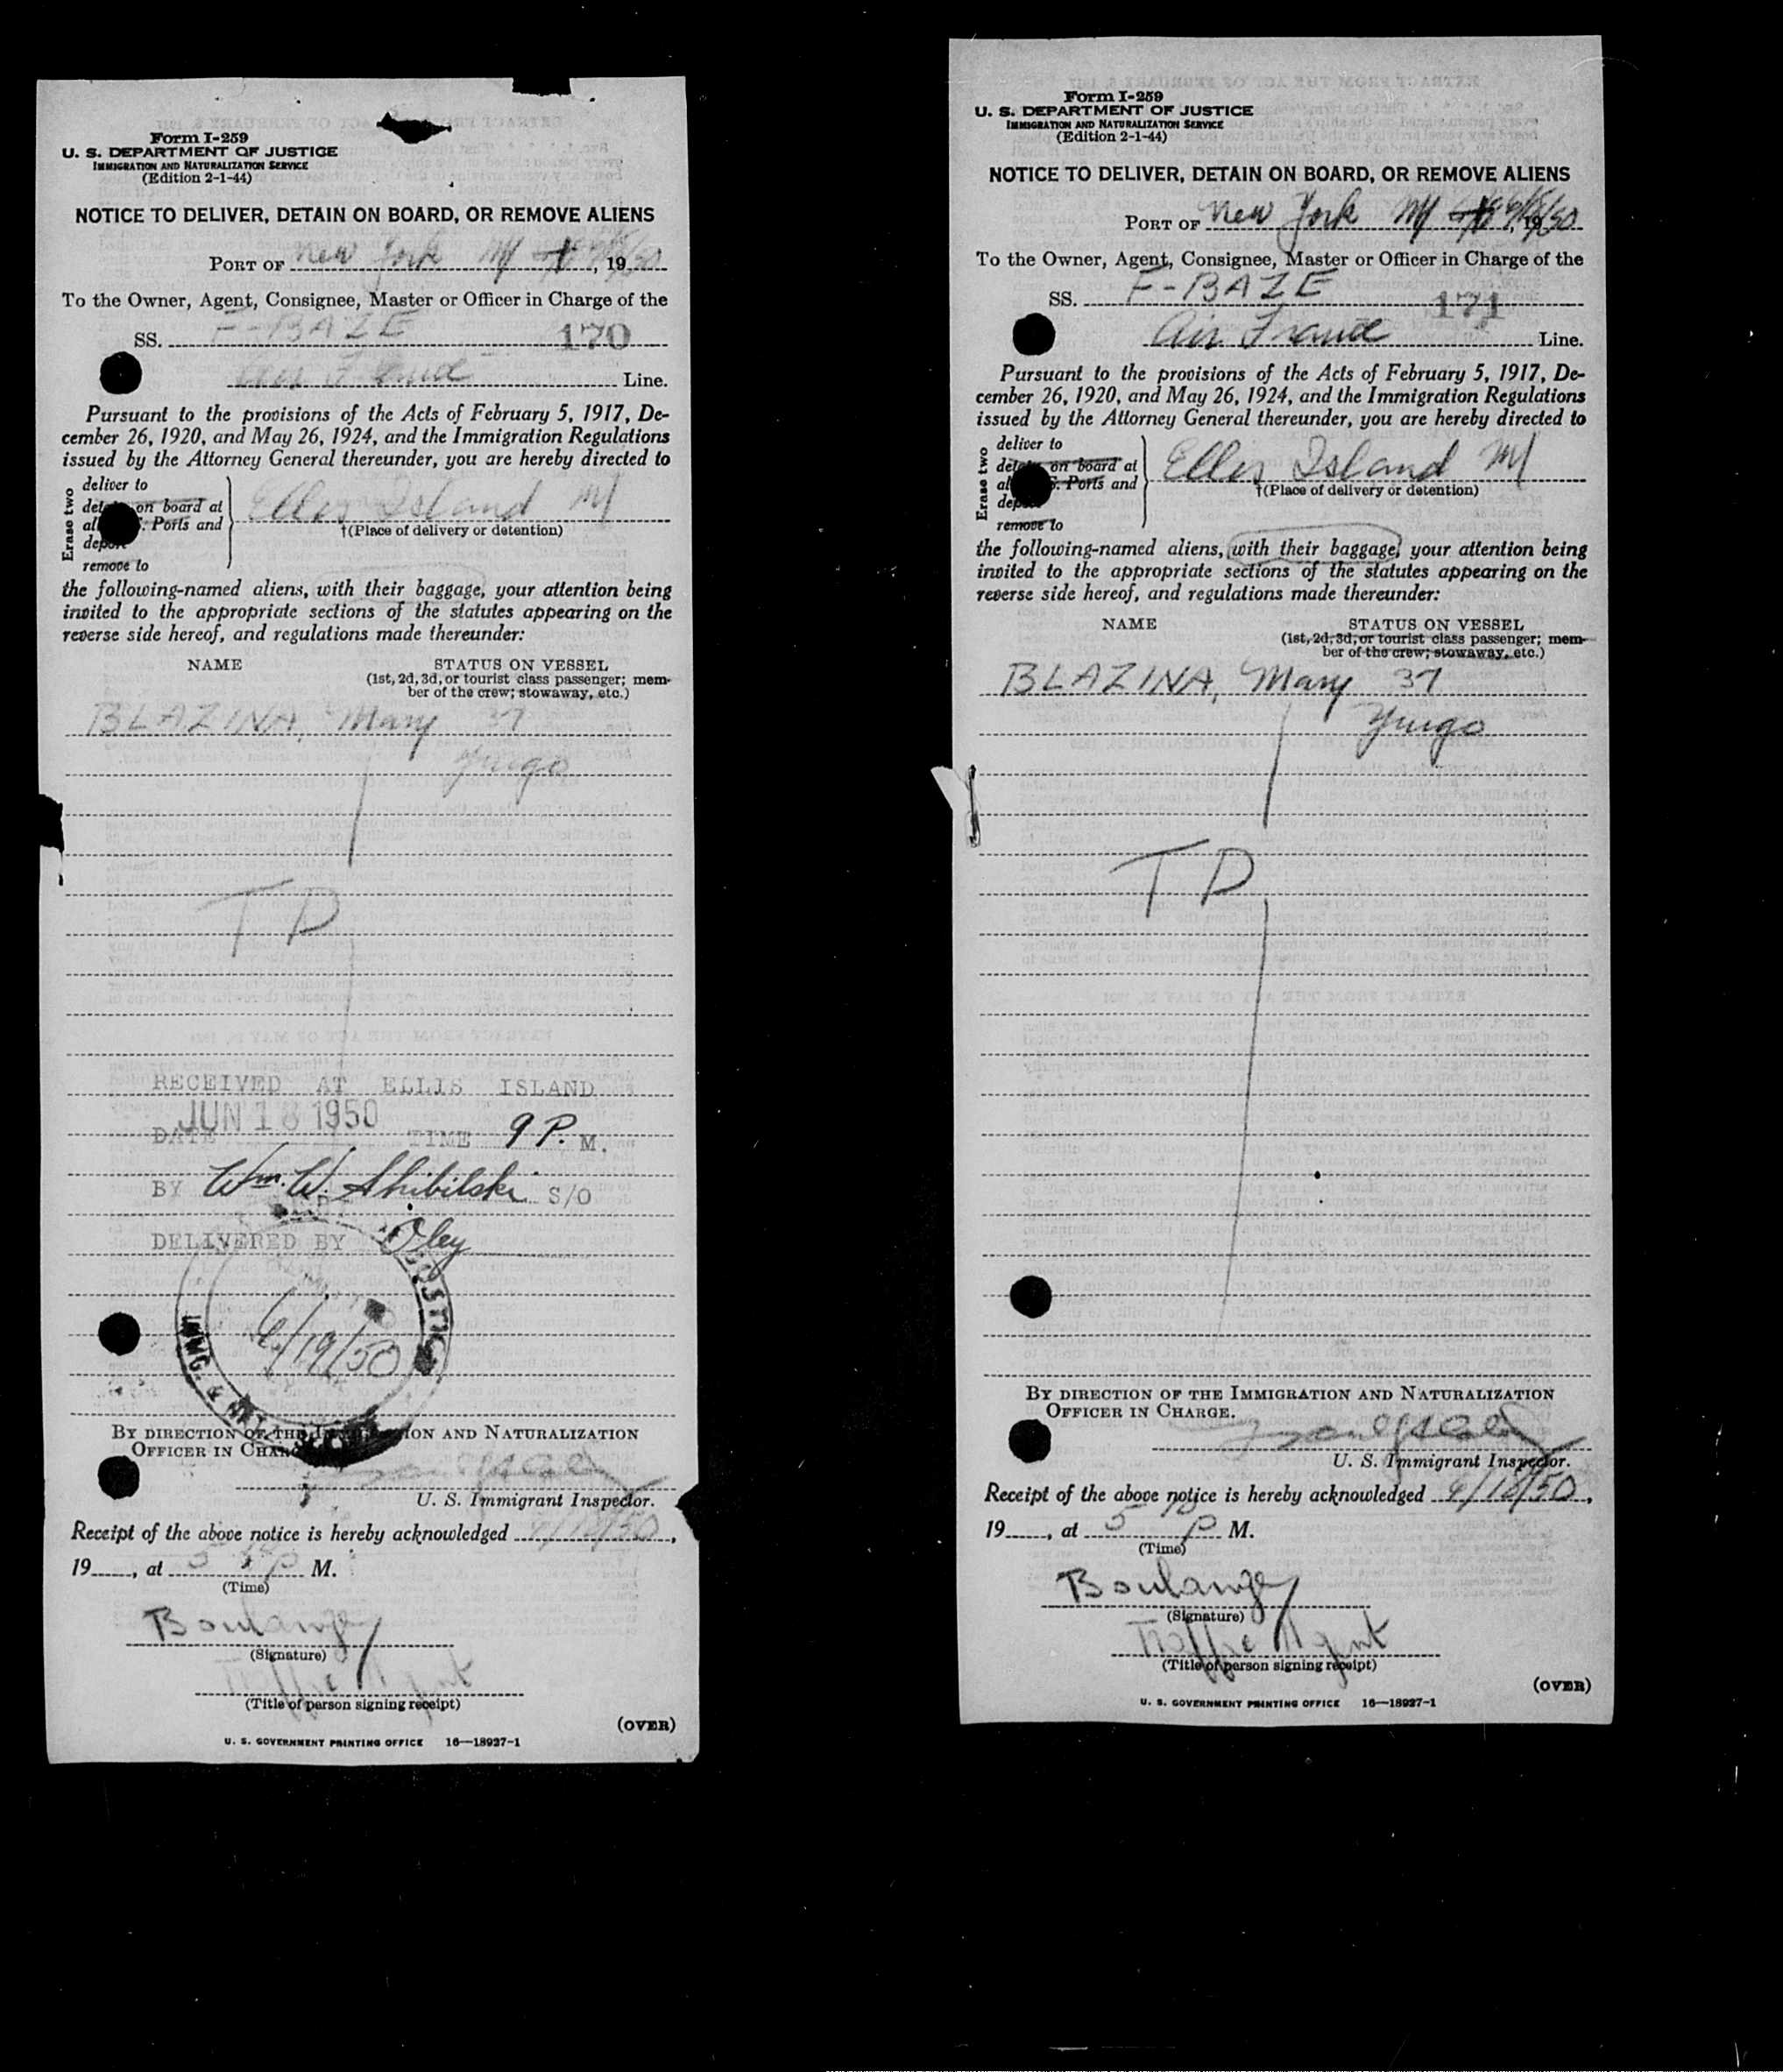 Form I-259
U. S. DEPARTMENT OF JUSTICE
IMMIGRATION AND NATURALIZATION SERVICE
(Edition 2-1-44)
NOTICE TO DELIVER, DETAIN ON BOARD, OR REMOVE ALIENS
PORT OF New York NY , 19 50
To the Owner, Agent, Consignee, Master or Officer in Charge of the
SS. F-BAZE 170
Air France Line.
Pursuant to the provisions of the Acts of February 5, 1917, De-
cember 26, 1920, and May 26, 1924, and the Immigration Regulations
issued by the Attorney General thereunder, you are hereby directed to
Erase two
deliver to
on board at
Ports and
remove to
Ellis Island NY
†(Place of delivery or detention)
the following-named aliens, with their baggage, your attention being
invited to the appropriate sections of the statutes appearing on the
reverse side hereof, and regulations made thereunder:
NAME STATUS ON VESSEL
(1st, 2d, 3d, or tourist class passenger; mem-
ber of the crew; stowaway, etc.)
BLAZINA, Mary 37
Yugo
TD
RECEIVED AT ELLIS ISLAND
JUN 18 1950
DATE TIME 9 P. M.
BY Wm. W. Shibilski S/O
DELIVERED BY Oley
6/19/50
JUSTICE
IMMG. & NAT.
BY DIRECTION OF THE ION AND NATURALIZATION
OFFICER IN CHARG
U. S. Immigrant Inspector.
Receipt of the above notice is hereby acknowledged 6/18/50,
19 , at 5 10 P M.
(Time)
Boulanger
(Signature)
Traffic Agent
(Title of person signing receipt)
(OVER)
U. S. GOVERNMENT PRINTING OFFICE 16—18927-1
Form I-259
U. S. DEPARTMENT OF JUSTICE
IMMIGRATION AND NATURALIZATION SERVICE
(Edition 2-1-44)
NOTICE TO DELIVER, DETAIN ON BOARD, OR REMOVE ALIENS
PORT OF New York NY 6/18/50, 19
To the Owner, Agent, Consignee, Master or Officer in Charge of the
SS. F-BAZE 171
Air France Line.
Pursuant to the provisions of the Acts of February 5, 1917, De-
cember 26, 1920, and May 26, 1924, and the Immigration Regulations
issued by the Attorney General thereunder, you are hereby directed to
Erase two
deliver to
on board at
Ports and
remove to
Ellis Island NY
†(Place of delivery or detention)
the following-named aliens, with their baggage, your attention being
invited to the appropriate sections of the statutes appearing on the
reverse side hereof, and regulations made thereunder:
NAME STATUS ON VESSEL
(1st, 2d, 3d, or tourist class passenger; mem-
ber of the crew; stowaway, etc.)
BLAZINA, Mary 37
Yugo
TD
BY DIRECTION OF THE IMMIGRATION AND NATURALIZATION
OFFICER IN CHARGE.
U. S. Immigrant Inspector.
Receipt of the above notice is hereby acknowledged 6/18/50,
19 , at 5 10 P M.
(Time)
Boulanger
(Signature)
Traffic Agent
(Title of person signing receipt)
(OVER)
U. S. GOVERNMENT PRINTING OFFICE 16—18927-1